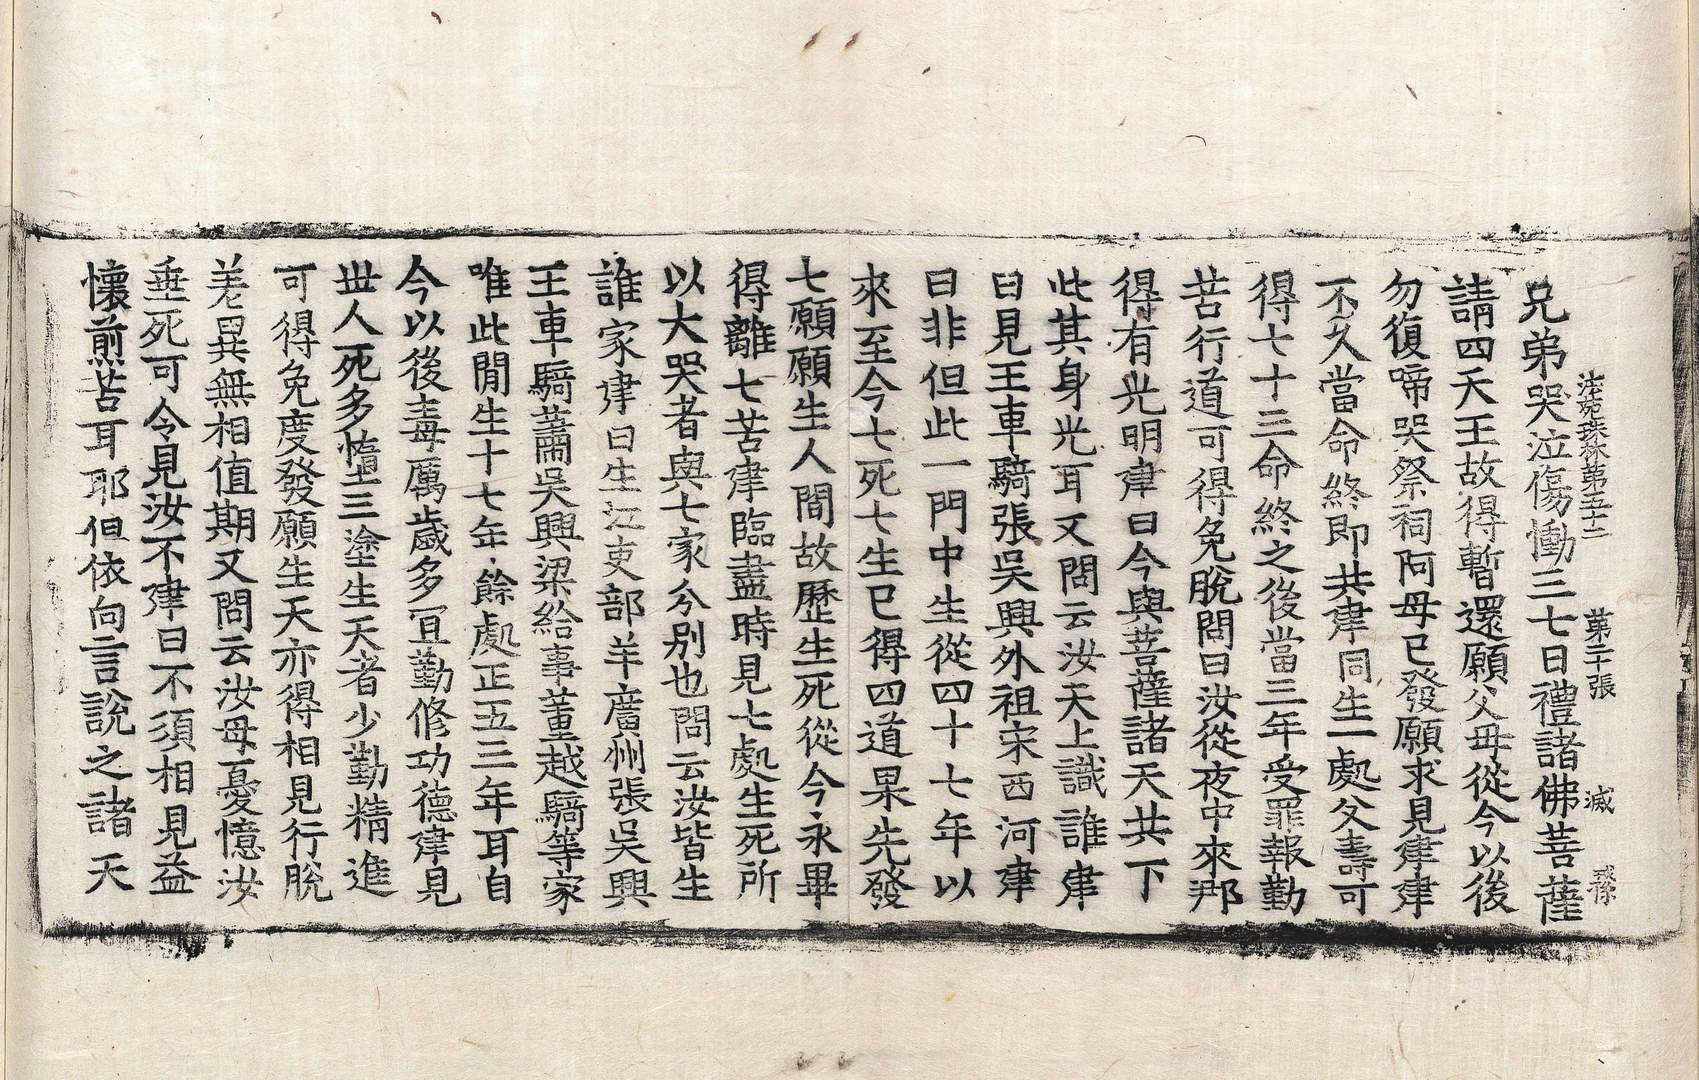 法苑珠林第五十二 第二十張 滅
兄弟哭泣傷慟三七日禮諸佛菩薩
請四天王故得暫還願父母從今以後
勿復啼哭祭祠阿母已發願求見建建
不久當命終即共建同生一處父壽可
得七十三命終之後當三年受罪報勤
苦行道可得免脫問曰汝從夜中來那
得有光明建曰今與菩薩諸天共下
此其身光耳又問云汝天上識誰建
曰見王車騎張吳興外祖宋西河建
曰非但此一門中生從四十七年以
來至今七死七生已得四道果先發
七願願生人間故歷生死從今永畢
得離七苦建臨盡時見七處生死所
以大哭者與七家分別也問云汝皆生
誰家建曰生江吏部羊廣州張吳興
王車騎蕭吳興梁給事董越騎等家
唯此閒生十七年餘處正五三年耳自
今以後毒厲歲多宜勤修功德建見
世人死多墮三塗生天者少勤精進
可得免度發願生天亦得相見行脫
差異無相值期又問云汝母憂憶汝
垂死可令見汝不建曰不須相見益
懷煎苦耳耶但依向言說之諸天